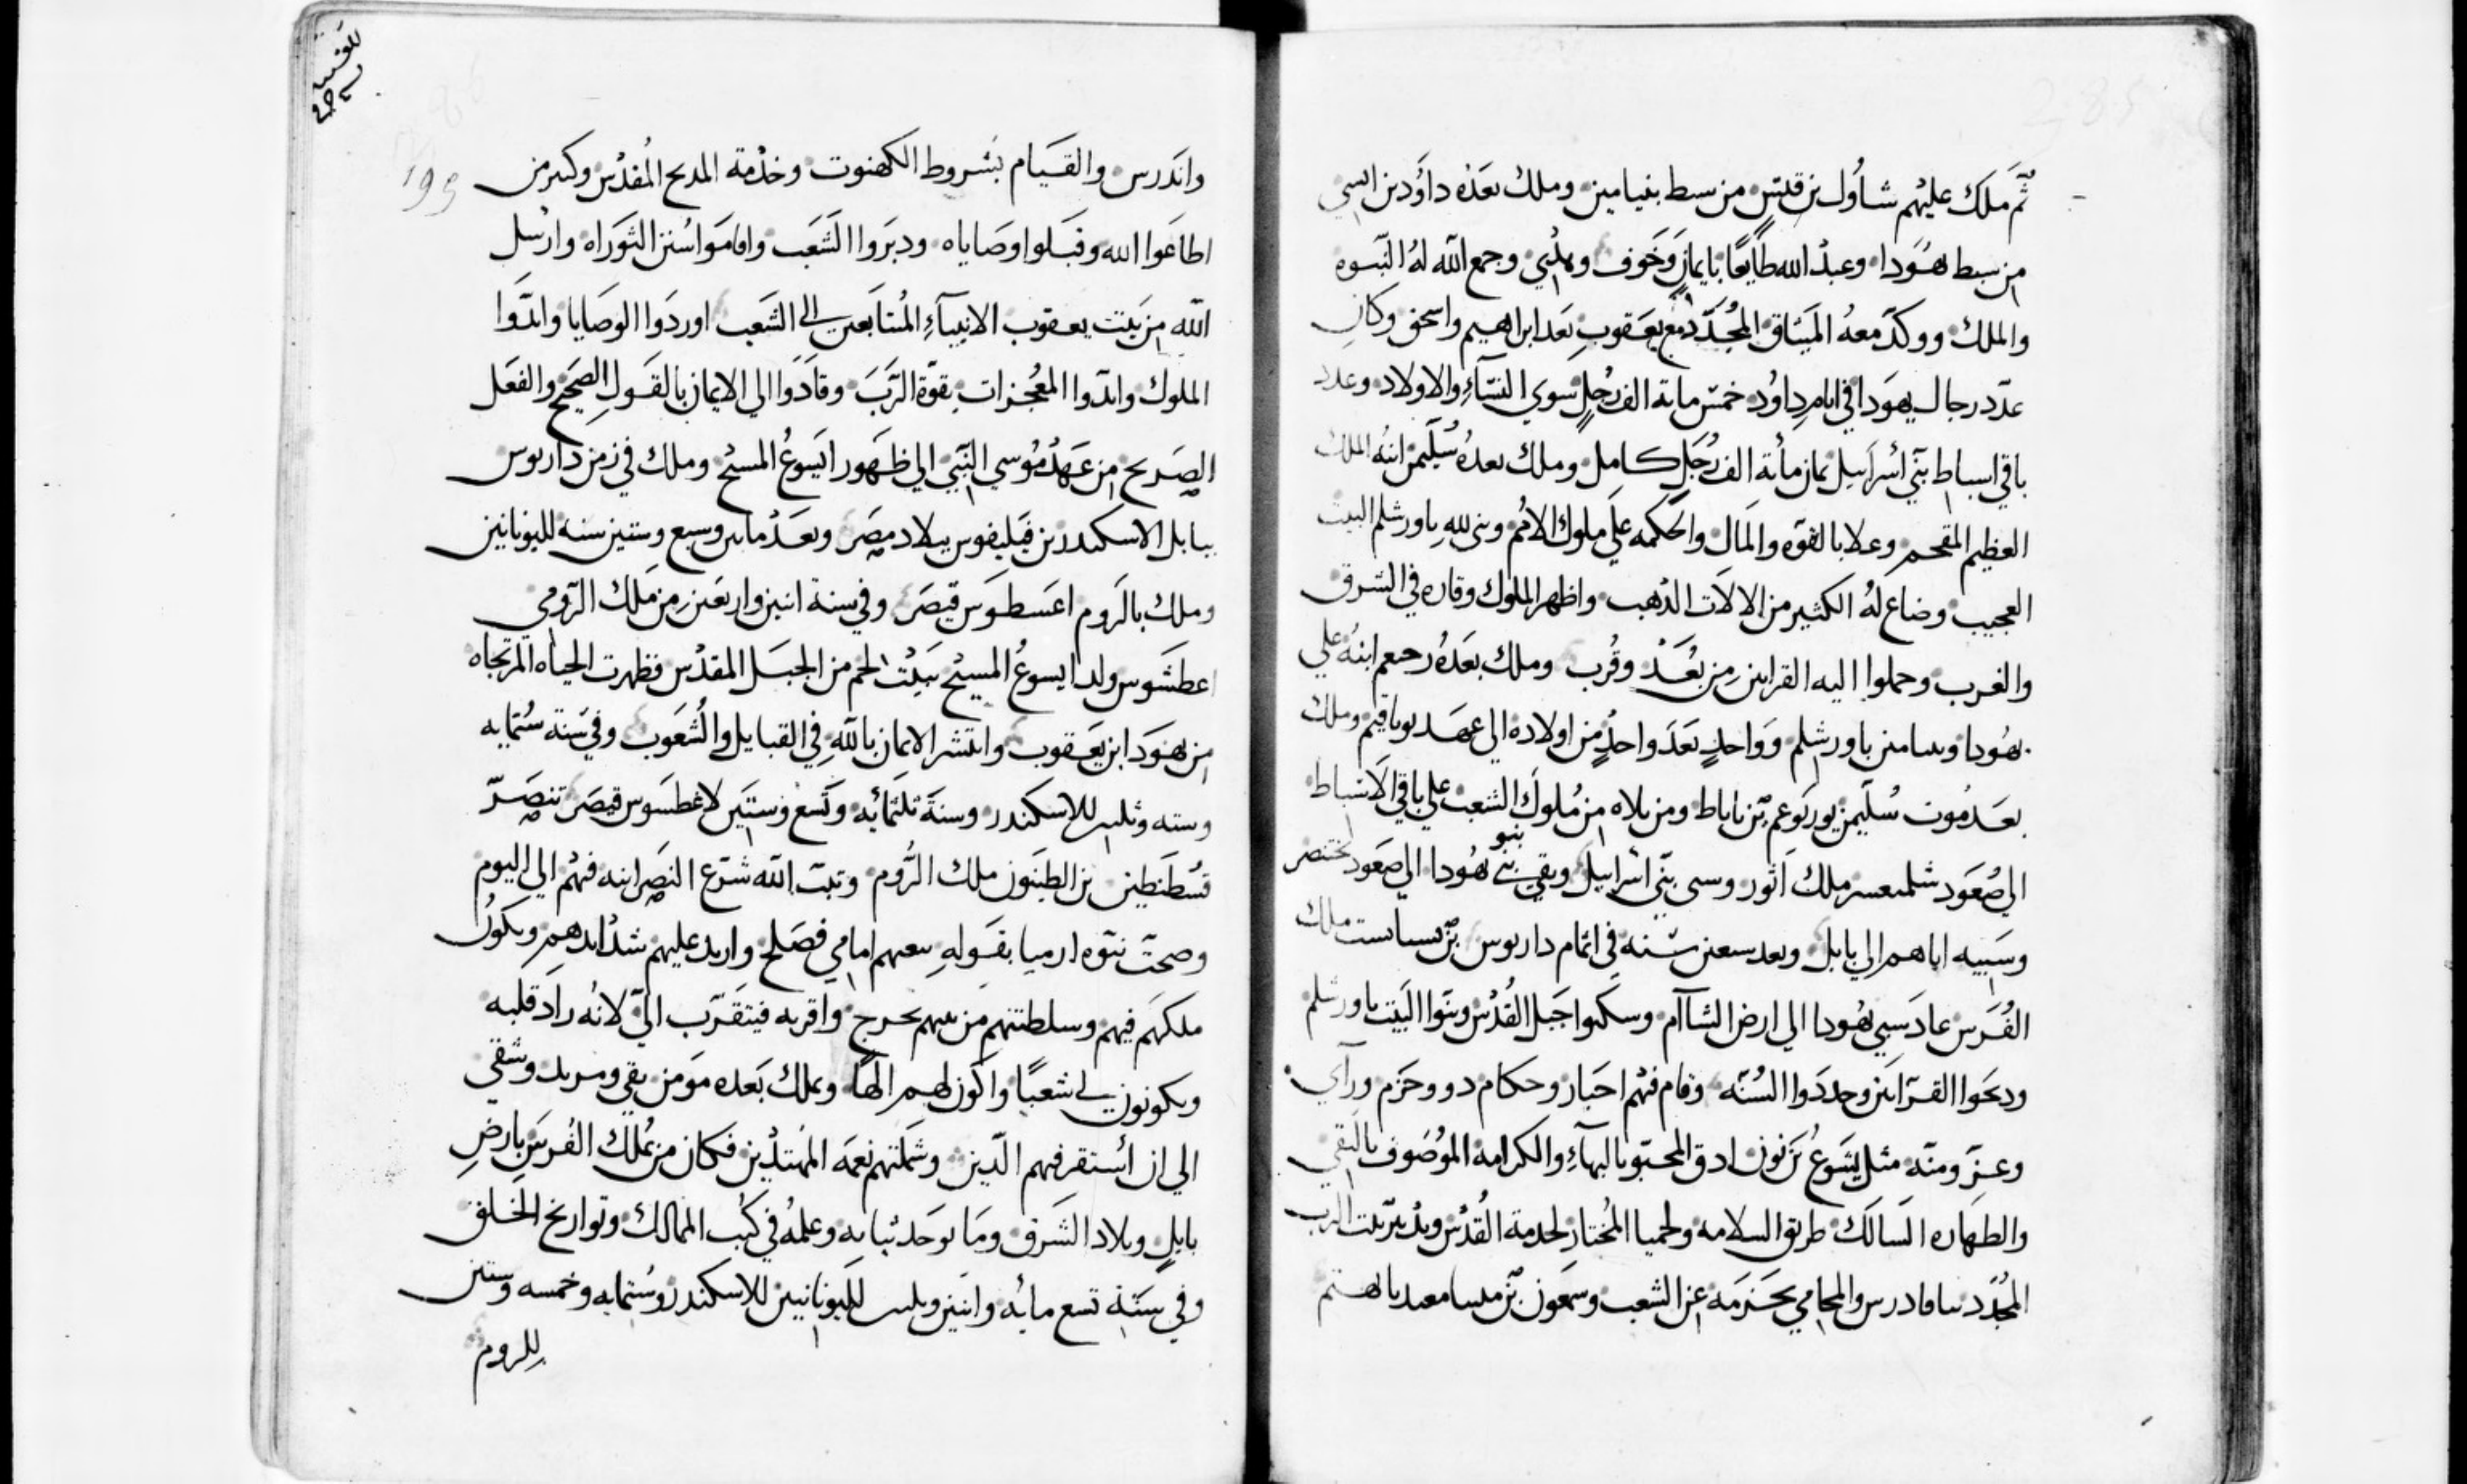 ثُمَّ ملك عليهم شاُول بن قيس من سبط بنيامين وملك بعَدُه داوُد بن ايسي
من سبط يهُودا وعبدُ الله طايعًا بايمانٍ وَخَوف وجمع الله لهُ النّبوه
والملك ووكدّ معهُ المَيثاق المجُدّد مع يعَقوبِ بعَد ابراهيم واسحق وكان
عدّد رجال يهوَدا في ايام داوُد خمسّ ماية الف رُجلٍ سوي النسّآءِ والاولاد وعدد
باقي اسباط بني اسُرايل ثمان مأية الف رُجَلٍ كامل وملك بعدهُ سُليَمن ابنُه الملك
العظيم المفخم وعلا بالقوّه والمَال والحكمه علَي ملوك الامُم وبني للهِ باورشلم البيت
العجيب وضاع لهُ الكثير من الالَات الذهب واظهر الملوك وقاره في الشرق
والغرب وحملوا اليه القرابين مِن بُعَدْ وقُرب وملك بعَدهُ رحبعم ابنُه علي
يهُودا وبنيامين باورشلم وَواحدٍ بعَدَ واحدٍ من اولاده الي عهَد يوياقيم وملك
بعَد مُوت سُليَمن يوربوعم بّن ناباط ومن تلاه من مُلوك الشعب علي باقي الاَسباط
الي صُعوَد شلمنعسر ملك اثور وسبي بنّي اسُرايل وبقي بنو يهُودا الي صَعود بختنصر
وسَبيه اياهم الي بابل وبعد سبعين سّنه في اتمام داريوس بّن بستاسب ملك
الفُرَس عاد سبي يهُودا الي ارض الشاآم وسكنوا جبَل القُدُس وبنَوا البَيت باورشلم
ودبحَوا القرَابَين وجددَوا السُنّه وقام فيهُم احبَار وحكام دوو حَزم ورآي
وعزّ ومنّه مثل يَشوَعُ بّن نون ادق المحتبو بالبهآءِ والكرامه الموُصَوف بالتقي
والطهَاره السَالَك طريق السلامه ولحميا المُختار لخدمة القُدسْ وتدُبير بَيت الرب
المجُدّد والمحامي بحَزمَه عن الشعب وسمعَون بّن
واندَرس والقيَام بشُروط الكهنوت وخدُمة المدبح المُقدُس وكثير من
اطاعَوا الله وقبَلوا وصَاياه ودبَروا الشَعَب واقامَوا سُنن التوَراه وارسُل
اللّه من بَيت يعقوب الانبيآءِ المُتتابَعين الي الشَعب اوردَوا الوصَايا وايدَّوا
الملوك وايدّوا المعُجزات بقوّة الرَبَ وقادَوا الي الايمان بالقَولِ الصَحيح والفعَل
الصَريح من عَهدُ مُوسي النّبي الي ظهَور ايسَوعُ المسيُح وملك في زمن داريوس
ببابل الاسكندر بن فيَليفوس ببلاد مصِرَ وبعَدُ مايتين وسبع وستين سنه لليونانيين
وملك بالَروم اغسَطوَس قيصَر وفي سنة اتنين واربعَين من مَلك الروّمي
اغطسَوس ولد ايسوعُ المسيُح ببَيتُ لحم من الجبَل المقدُس فظهرت الحياه المرتجاه
من يهوَدَ ابن يعَقوب وانتشر الايمان باللّهِ في القبايل والشُعَوب وفي سَنة سُتمايه
وسته وثلثين للاسكندر وسنةَ تلتمُايه وتَسعَ وَستيَن لاغطسَوس قيصَر تنصَرّ
قسُطنطين بن الطينَون ملك الرُوم وثبت اللّه شرّع النصَرانيه فيهُم الي اليوم
وصحتّ نبوّه ارميا بقَولهِ امامي فصَلح واريد عليهم شدُايدهم ويكوَنُ
ملكهَم فيهم وسلطنتهم من بينهم يخرج واقربه فيتقَرّب اليّ لانُه رادَ قلبه
ويكونون لي شعبًا واكون لهم الهًا ويملك بَعَده موَمن تقي ومريد وشقي
الي ان اسُتقر فيهم الدّين وشمَلتهم نعمَه المهتدُين فكان من يملك الفُرسَ بارضِ
بابلٍ وبلاد الشَرق ومَا توجد وعلمهُ في كُتب الممالك وتواريخ الخلق
وفي سنَة تسع مائه واتنين وتلثين لليونانيين للاسكندر وسُتمايه وخمسه وستين
للِروم
195